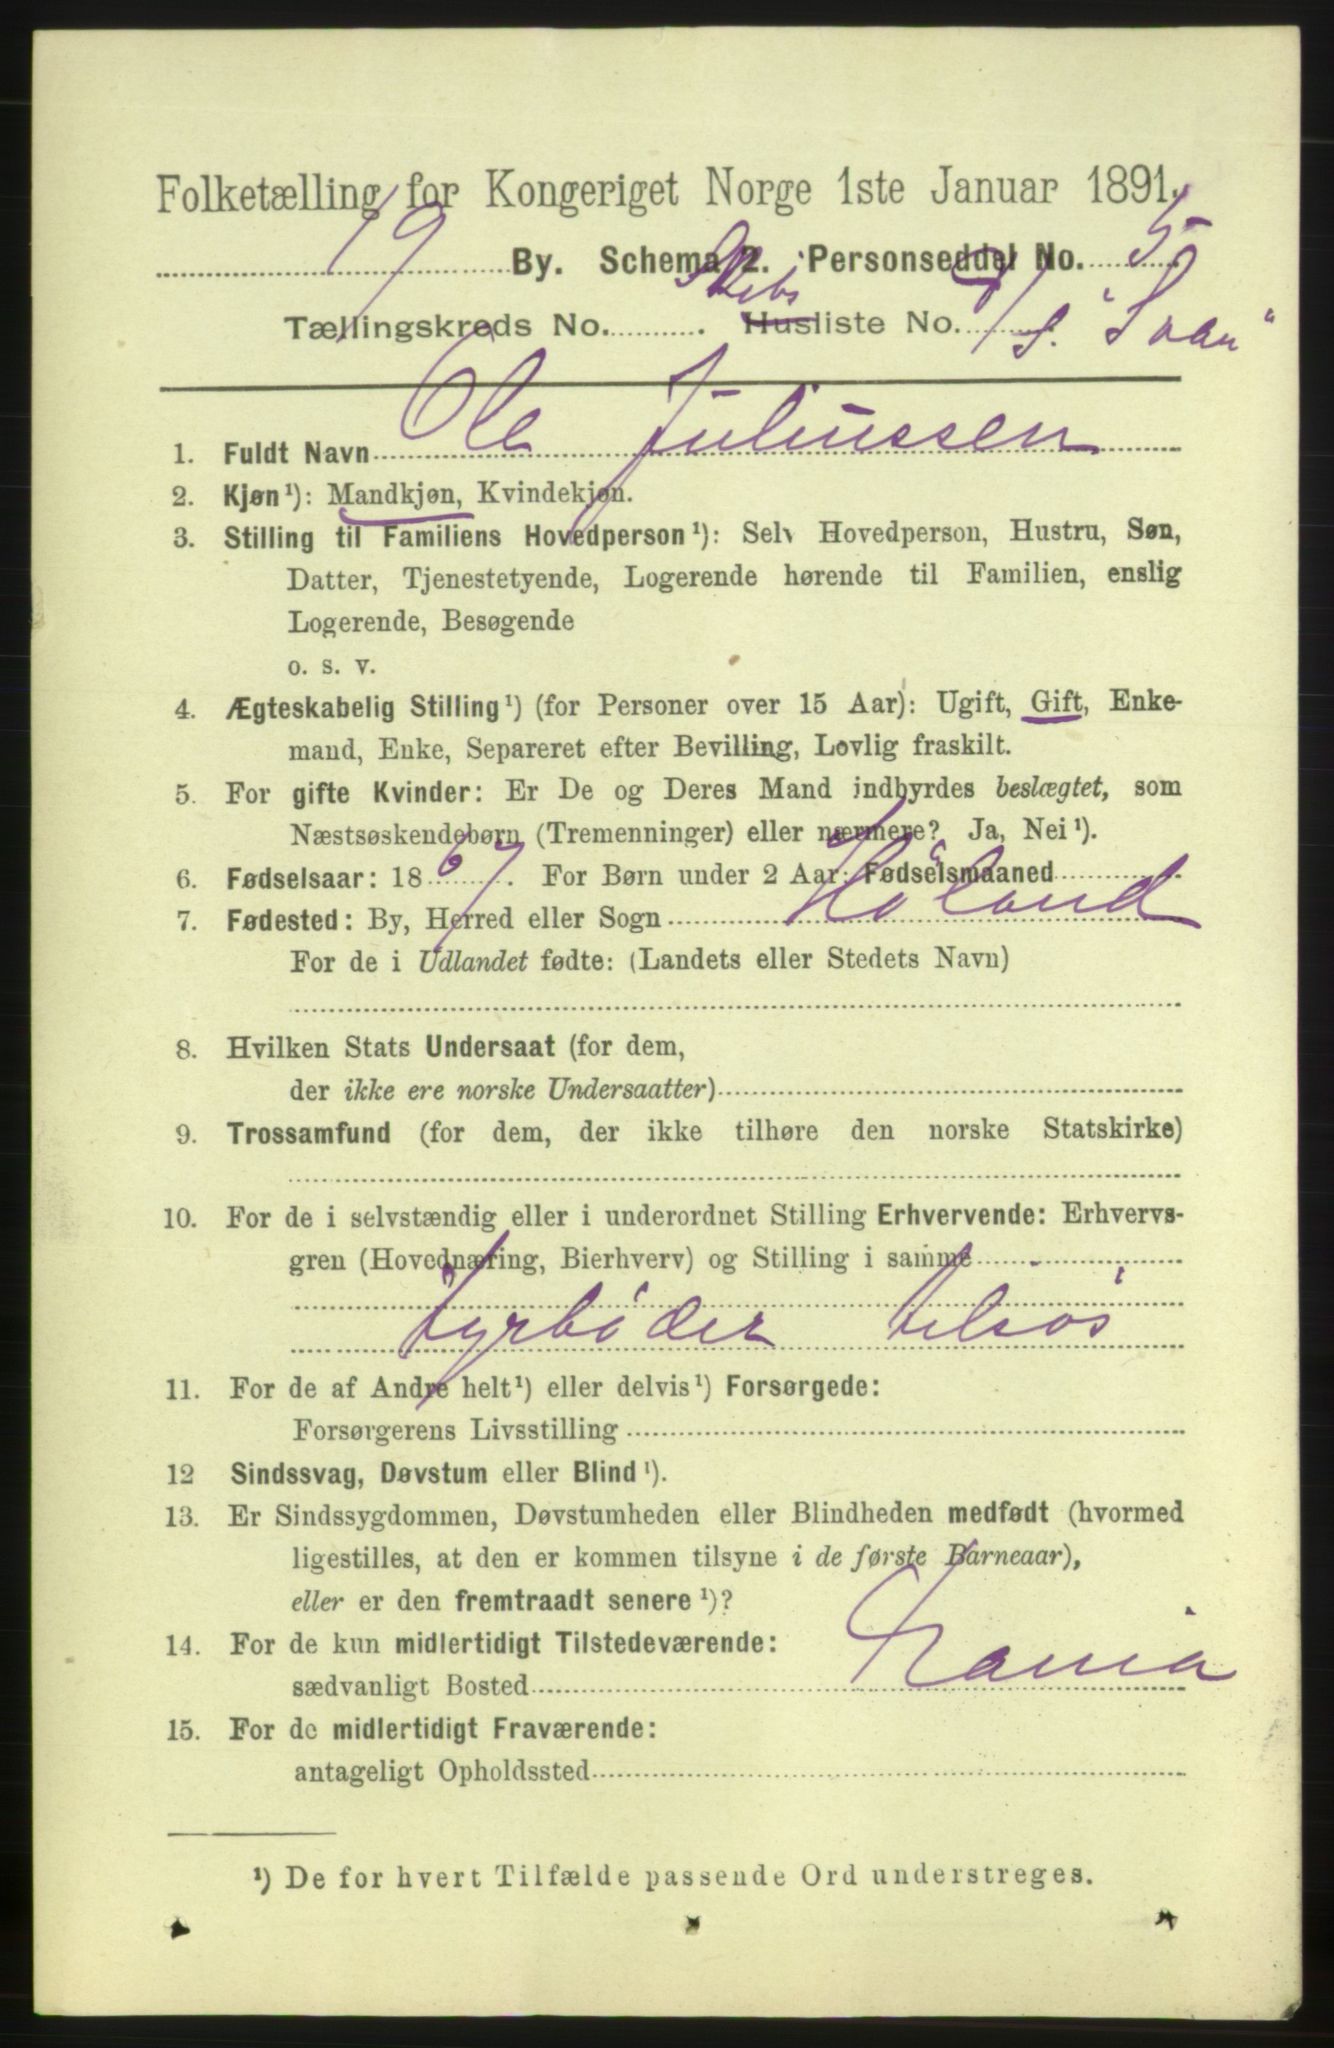 Folketælling for Kongeriget Norge 1ste Januar 1891.
19 By. Schema 2. Personseddel No. 5
Tællingskreds No. Skibs Husliste No. D/S. "Svan"
1. Fuldt Navn Ole Juliussen
2. Kjøn¹): Mandkjøn, Kvindekjøn.
3. Stilling til Familiens Hovedperson¹): Selv Hovedperson, Hustru, Søn,
Datter, Tjenestetyende, Logerende hørende til Familien, enslig
Logerende, Besøgende
o. s. v.
4. Ægteskabelig Stilling¹) (for Personer over 15 Aar): Ugift, Gift, Enke-
mand, Enke, Separeret efter Bevilling, Lovlig fraskilt.
5. For gifte Kvinder: Er De og Deres Mand indbyrdes beslægtet, som
Næstsøskendebørn (Tremenninger) eller nærmere? Ja, Nei¹).
6. Fødselsaar: 1867. For Børn under 2 Aar: Fødselsmaaned
7. Fødested: By, Herred eller Sogn Høland
For de i Udlandet fødte: (Landets eller Stedets Navn)
8. Hvilken Stats Undersaat (for dem,
der ikke ere norske Undersaatter)
9. Trossamfund (for dem, der ikke tilhøre den norske Statskirke)
10. For de i selvstændig eller i underordnet Stilling Erhvervende: Erhvervs-
gren (Hovednæring, Bierhverv) og Stilling i samme
fyrbøder tilsøs
11. For de af Andre helt¹) eller delvis¹) Forsørgede:
Forsørgerens Livsstilling
12 Sindssvag, Døvstum eller Blind¹).
13. Er Sindssygdommen, Døvstumheden eller Blindheden medfødt (hvormed
ligestilles, at den er kommen tilsyne i de første Barneaar),
eller er den fremtraadt senere¹)?
14. For de kun midlertidigt Tilstedeværende:
sædvanligt Bosted
15. For de midlertidigt Fraværende:
antageligt Opholdssted
¹) De for hvert Tilfælde passende Ord understreges.